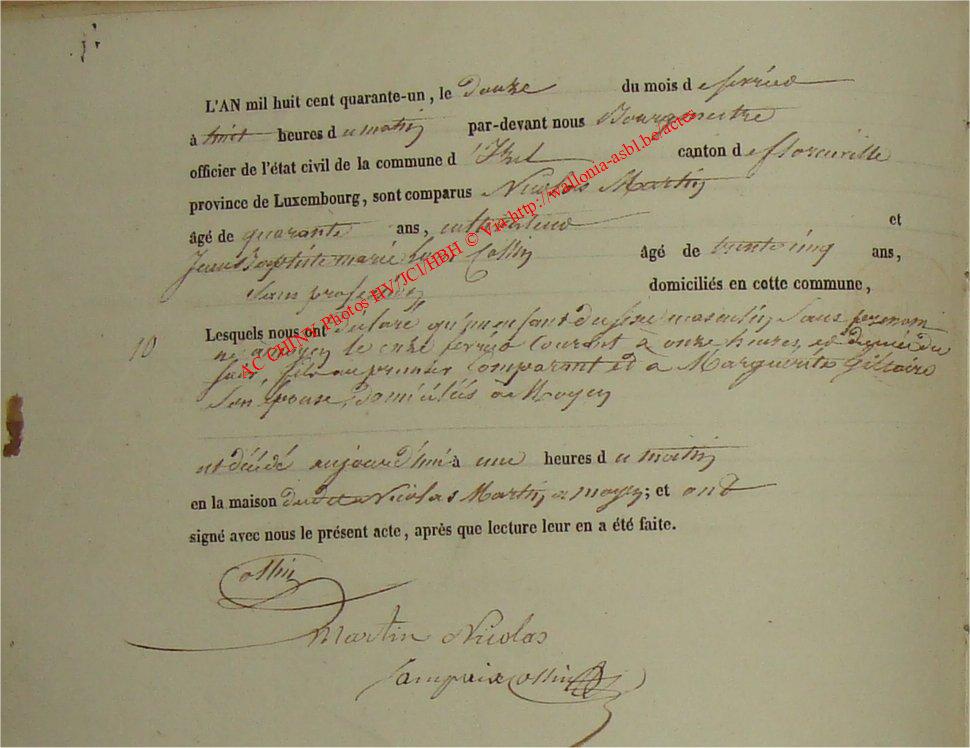 L'AN mil huit cent quarante-un, le douze du mois de fevrier
à huit heures du matin par-devant nous Bourgmestre
officier de l'état civil de la commune d'Izel canton de florenville
province de Luxembourg, sont comparus Nicolas Martin
âgé de quarante ans, cultivateur et
Jean Baptiste marie Collin âgé de trente cinq ans,
sans profession domiciliés en cette commune,
Lesquels nous ont déclaré qu'un enfant du sexe masculin, sans prenom
10
né a moyen le onze fevrier courant a onze heures, et demie du
soir, fils au premier comparant et a Marguerite Gillaire
son epouse, domiciliés a Moyen
est décédé aujourd'hui à une heures du matin
en la maison dudit Nicolas Martin a moyen; et ont
signé avec nous le présent acte, après que lecture leur en a été faite.
Collin
Martin Nicolas
Lampaix Collin
AC CHINY Photos HV/JCI/HBH © Via http://wallonia-asbl.be/actes